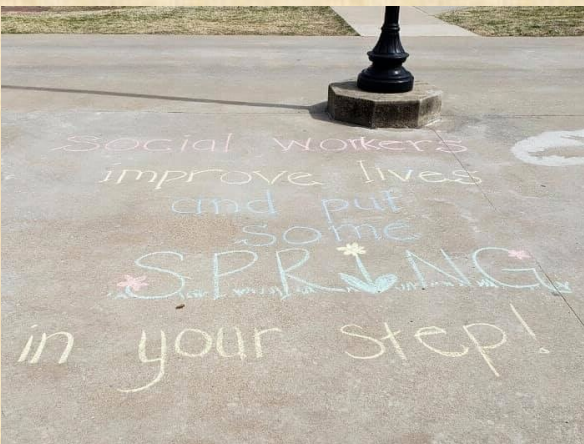 Social workers
improve lives
and put
some
SPRING
in your step!